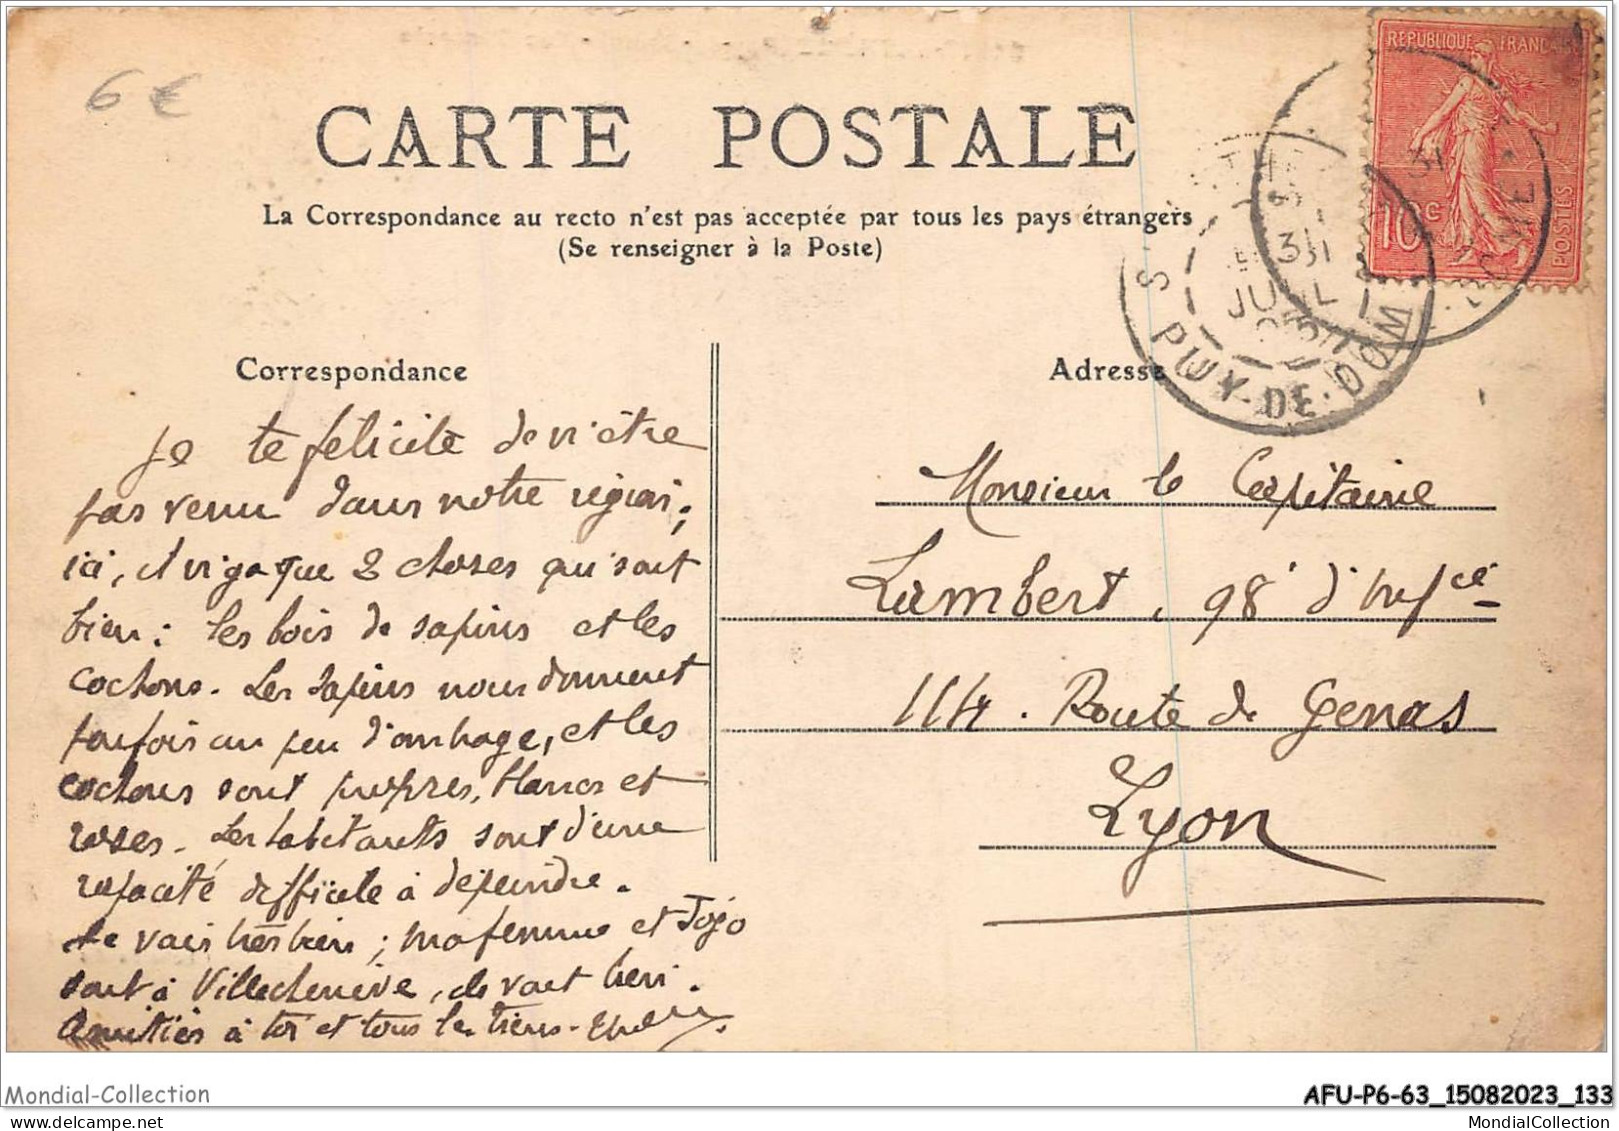 6 €
CARTE POSTALE
La Correspondance au recto n'est pas acceptée par tous les pays étrangers
(Se renseigner à la Poste)
REPUBLIQUE FRANÇAISE
10c
POSTES
31
JUIL
PUY-DE-DOME
Correspondance
Je te félicite de n'être
pas venu dans notre région;
ici, il n'y a que 2 choses qui sont
bien: les bois de sapins et les
cochons. Les sapins nous donnent
parfois un peu d'ombrage, et les
cochons sont propres, blancs et
roses. Les habitants sont d'une
rapacité difficile à dépeindre.
Je vais très bien; ma femme et Jojo
sont à Villechenève, ils vont bien.
Amitiés à toi et tous les tiens-
Adresse
Monsieur le Capitaine
Lambert, 98e d'Infie
114. Route de Genas
Lyon
Mondial-Collection
AFU-P6-63_15082023_133
MondialCollection